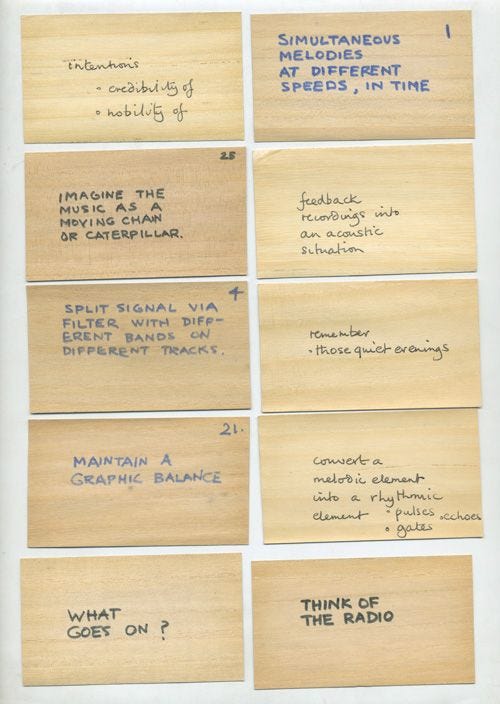 intentions
• credibility of
• nobility of
1
SIMULTANEOUS
MELODIES
AT DIFFERENT
SPEEDS, IN TIME
25
IMAGINE THE
MUSIC AS A
MOVING CHAIN
OR CATERPILLAR.
feedback
recordings into
an acoustic
situation
4
SPLIT SIGNAL VIA
FILTER WITH DIFF-
ERENT BANDS ON
DIFFERENT TRACKS.
remember
• those quiet evenings
21.
MAINTAIN A
GRAPHIC BALANCE
convert a
melodic element
into a rhythmic
element • pulses • echoes
• gates
WHAT
GOES ON ?
THINK OF
THE RADIO